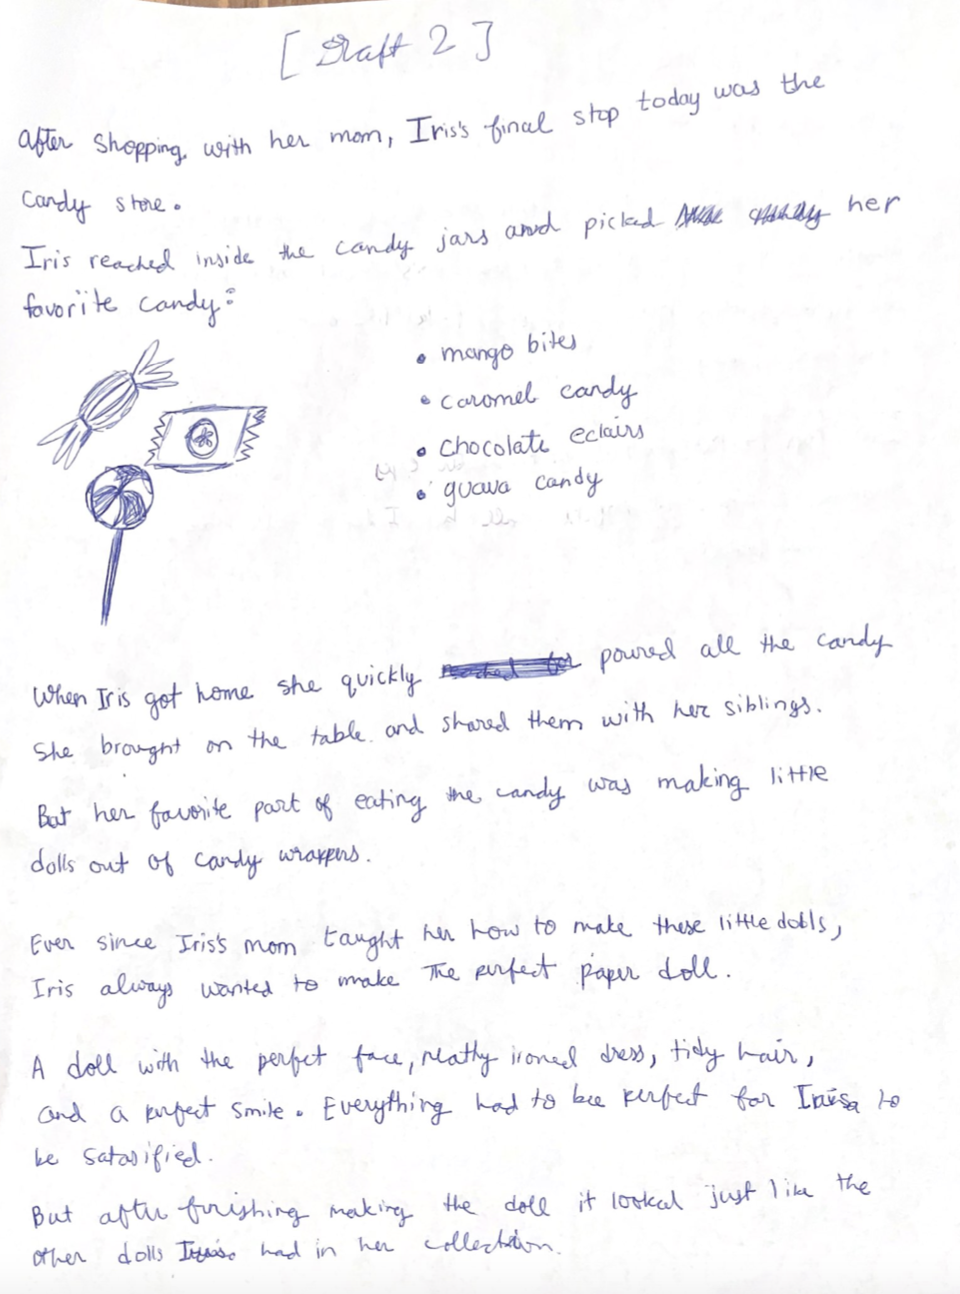 [Draft 2]
After Shopping with her mom, Iris's final stop today was the
Candy store.
Iris reached inside the candy jars and picked her
favorite candy:
• mango bites
• caromel candy
• chocolate eclairs
• guava candy
When Iris got home she quickly poured all the candy
She brought on the table and shared them with her siblings.
But her favorite part of eating the candy was making little
dolls out of candy wrappers.
Ever since Iris's mom taught her how to make these little dolls,
Iris always wanted to make the perfect paper doll.
A doll with the perfect face, neatly ironed dress, tidy hair,
and a perfect smile. Everything had to be perfect for to
be satasified.
But after finishing making the doll it looked just like the
other dolls had in her collection.